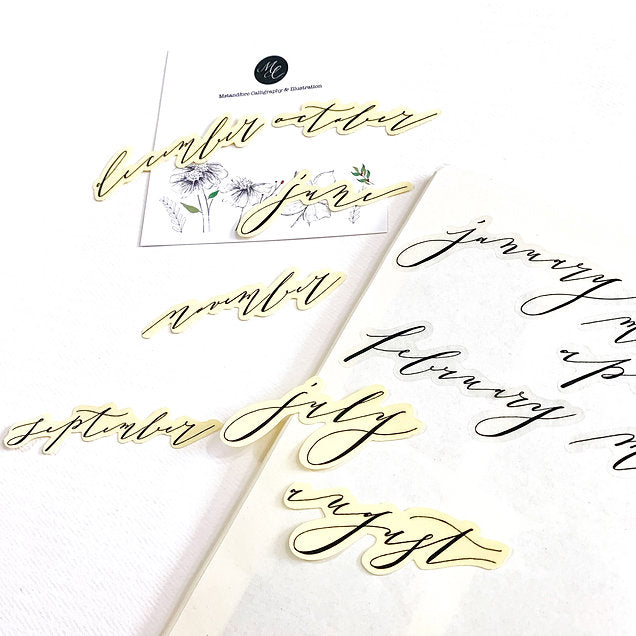 MC
Metanoiire Calligraphy & Illustration
december october
june
january
m
november
ap
february
m
july
september
august